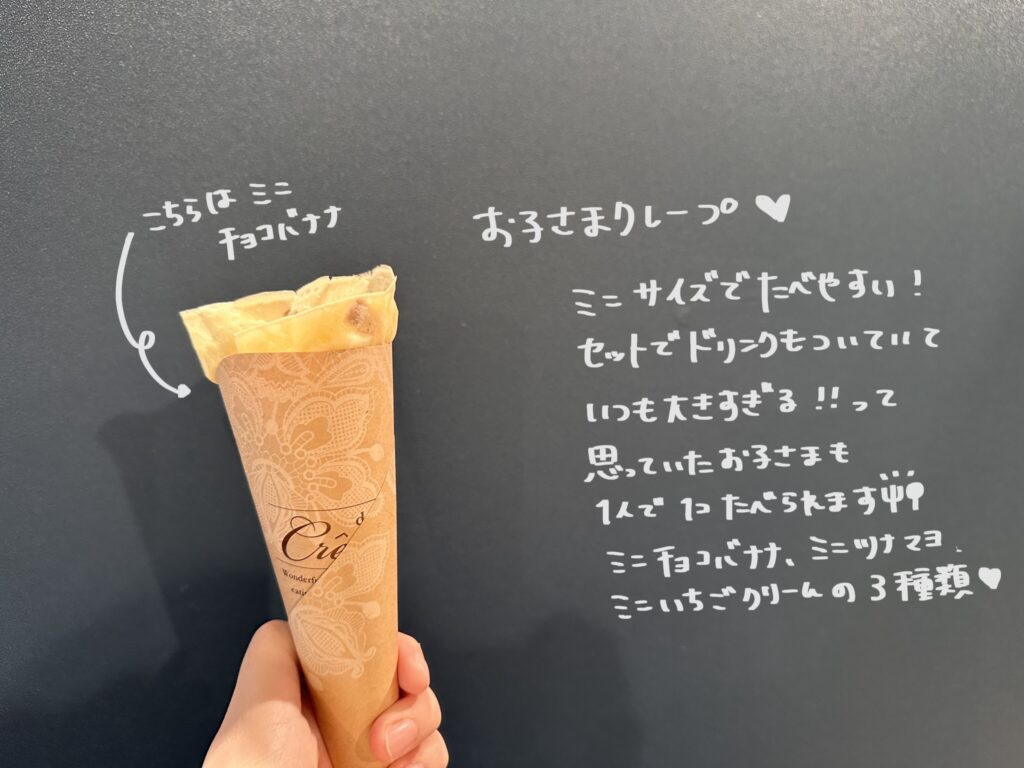 こちらは ミニ
チョコバナナ
お子さまクレープ♥
ミニサイズでたべやすい！
セットでドリンクもついていて
いつも大きすぎる!!って
思っていたお子さまも
1人で1コたべられます
ミニチョコバナナ、ミニツナマヨ、
ミニいちごクリームの3種類♥
Crê
Wonderf
eati